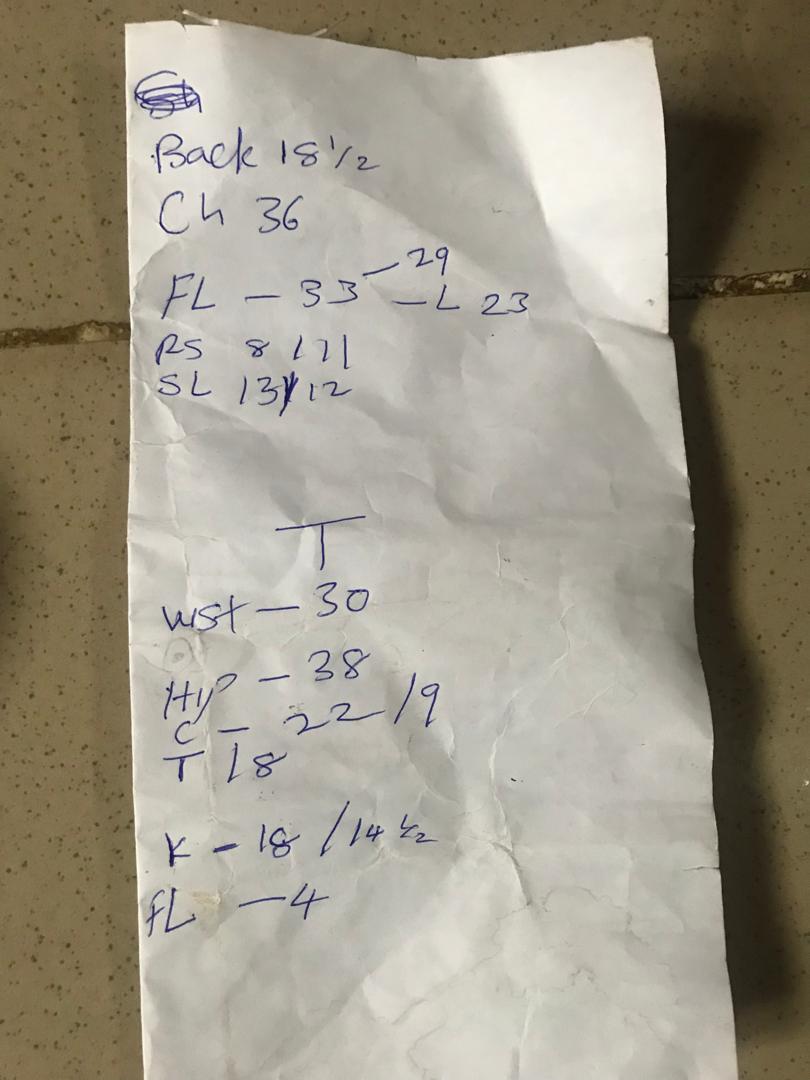 Back 18 1/2
Ch 36
FL - 33 - 29
- L 23
RS 8 / 71
SL 13/12
T
wst - 30
Hip - 38
C - 22 / 9
T 18
K - 18 / 14 1/2
FL - 4